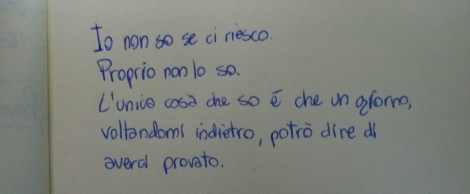 Io non so se ci riesco.
Proprio non lo so.
L'unica cosa che so è che un giorno,
voltandomi indietro, potrò dire di
averci provato.